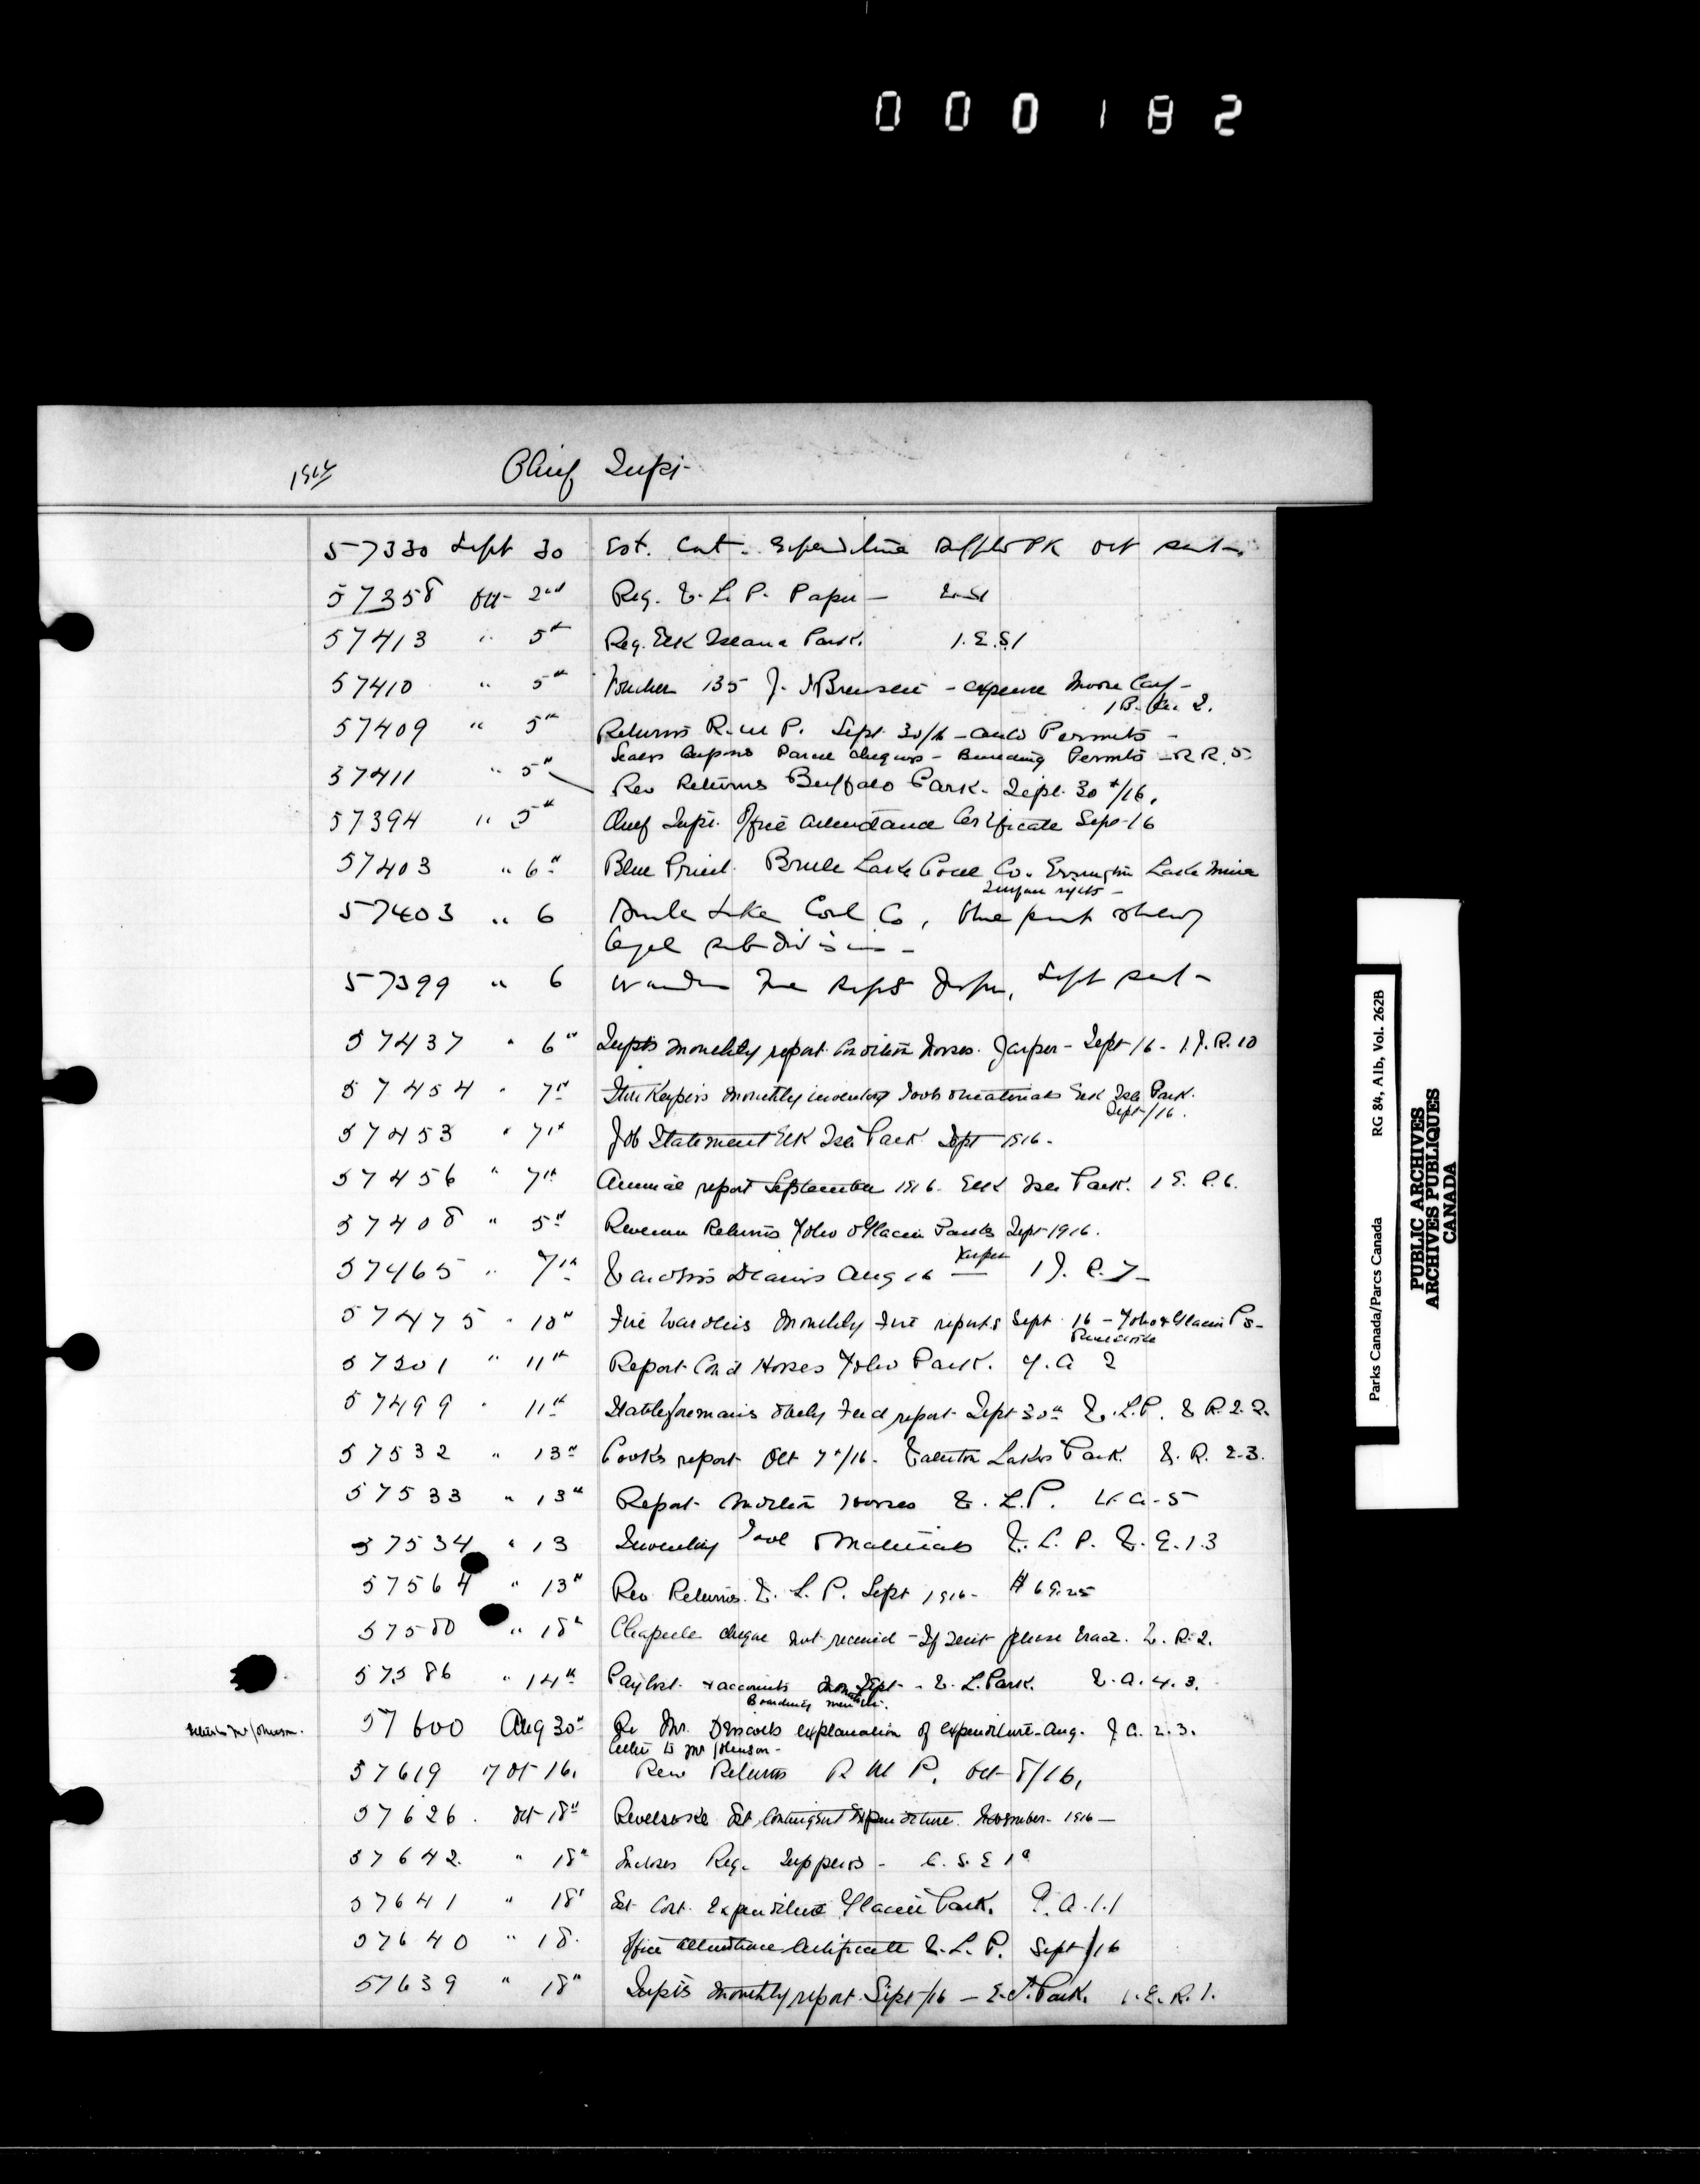 000182
Chief Supt-
57330 Sept 30 Est. Cont. Expenditure Buffalo Pk Oct sent-
57358 Oct- 2nd Reg. W. L. P. Paper -
57413 " 5th Reg. Elk Island Park. 1.E.S.1
57410 " 5th Voucher 135 J. - expense Moose Calf -
57409 " 5th Returns R. M P. Sept 30/16 - auto Permits -
cheques - Building Permits - R R. 5
57411 " 5th Rev Returns Buffalo Park. Sept. 30th/16.
57394 " 5th Chief Supt. Office attendance Certificate Sept-16
57403 " 6th Blue Print. Brule Lake Coal Co. Lake Mine
Surface rights -
57403 " 6 Brule Lake Coal Co, blue print showing
legal subdivision -
57399 " 6 Warden Fire Repts Jasper, Sept sent -
57437 " 6th Supts monthly report Condition Horses. Jasper - Sept/16 - 1 J. R. 10
57454 " 7th Storekeepers monthly inventory Tools & materials Elk Isld Park.
Sept/16.
57453 " 7th Job Statement Elk Isld Park Sept 1916 -
57456 " 7th Annual report September 1916. Elk Isld Park. 1 E. R. 6.
57408 " 5th Revenue Returns Yoho & Glacier Parks Sept-1916.
57465 " 7th Wardens Diaries Aug 16 Jasper 1 J. R. 7 -
57475 " 10th Fire Wardens Monthly Fire reports Sept. 16 - Yoho & Glacier Ps -
Revelstoke
57501 " 11th Report Cond Horses Yoho Park. Y. A 2
57499 " 11th Stableforemans Feed report Sept 30th W. L. P. W R. 2. 2.
57532 " 13th Cooks report Oct 7th/16 - Waterton Lakes Park. W. R. 2-3.
57533 " 13th Report Condition Horses W. L. P.
57534 " 13 Inventory Tool & Materials W. L. P. W. E. 1.3
57564 " 13th Rev Returns. W. L. P. Sept 1916 - $69.25
57580 " 18th cheque not received - If sent please trace. W. R. 2.
57586 " 14th Paylist & accounts Sept - W. L. Park. W. A. 4. 3.
Boarding
Letter to Mr Johnson. 57600 Aug 30th Re Mr. Driscolls explanation of expenditure - Aug. J A. 2. 3.
Letter to Mr Johnson -
57619 17 Oct 16. Rev Returns R M P. Oct 8/16.
57626. Oct 18th Revelstoke Est. Contingent Expenditure. November - 1916 -
57642. " 18th Encloses Req. Supplies -
57641 " 18th Est. Cont. Expenditure Glacier Park. G. A. 1.1
57640 " 18. Office attendance Certificate W. L. P. Sept/16
57639 " 18th Supts monthly report. Sept/16 - E. I. Park. 1. E. R. 1.
Parks Canada/Parcs Canada RG 84, A1b, Vol. 262B
PUBLIC ARCHIVES
ARCHIVES PUBLIQUES
CANADA